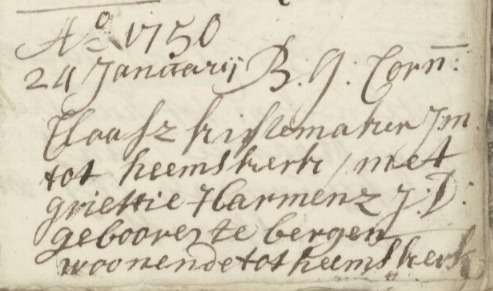 Ao 1750
24 Januarij B. G: Corn:
Claasz kistemaker J:m
tot heemskerk / met
griettie Harmenz J:D:
geboore te bergen
woonende tot heemskerk